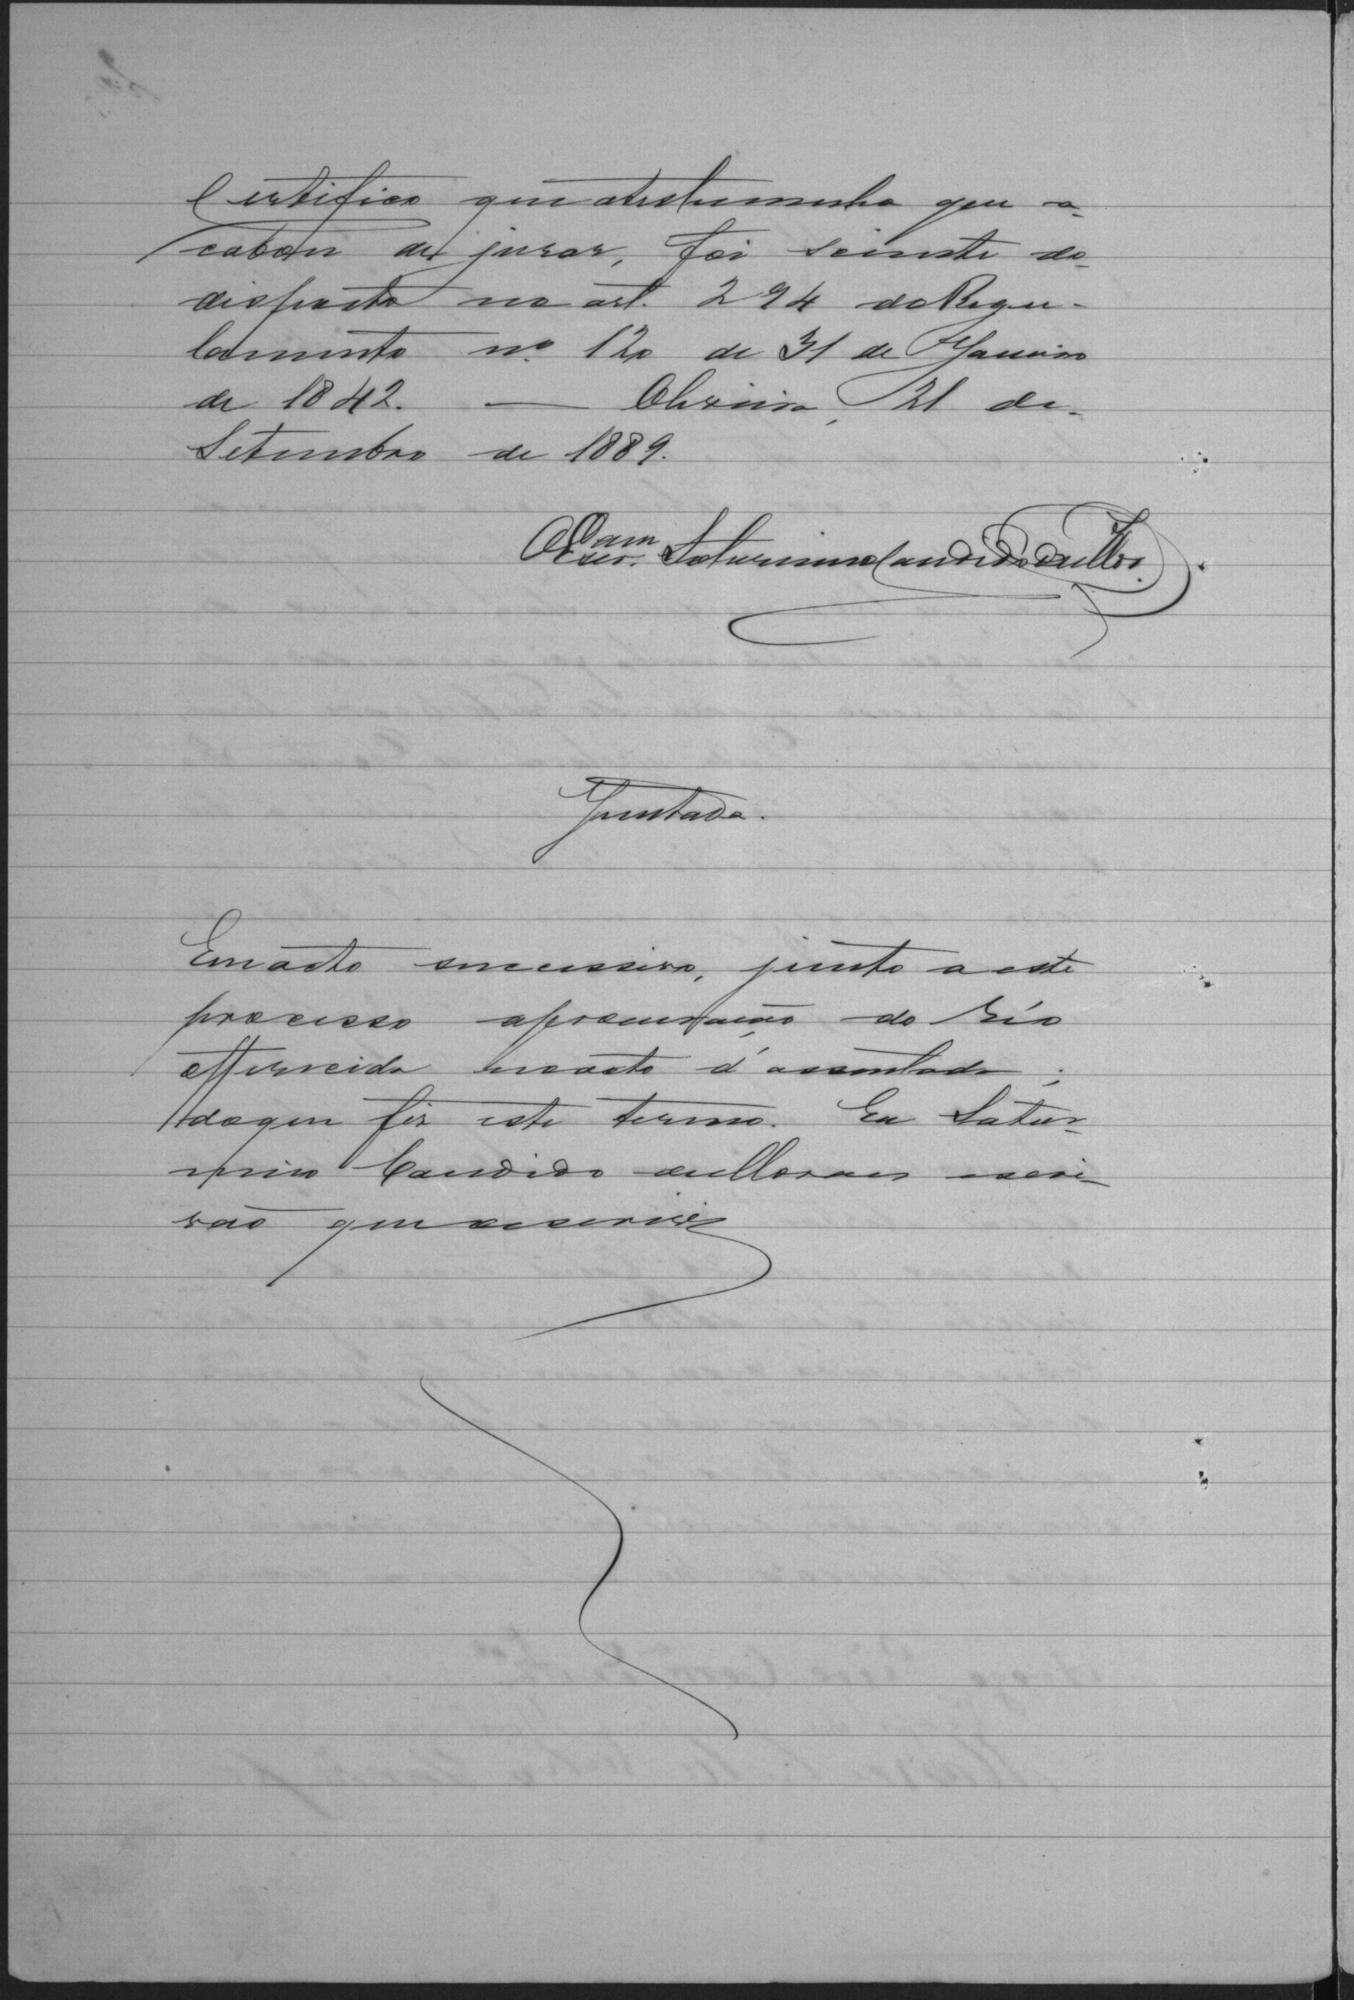 Certifico que atestemunha que a-
cabou de jurar, foi sciente do
disposto no art. 294 do Regu-
lamento nº 120 de 31 de Janeiro
de 1842. — Oliveira, 21 de
Setembro de 1889.
O Escr. Saturnino Candido
Juntada.
Em acto successivo, junto a este
processo aprocuração do réo
offerecida noacto d'assentada;
doque fiz este termo. Eu Satur-
nino Candido escri-
vão que o escrevi